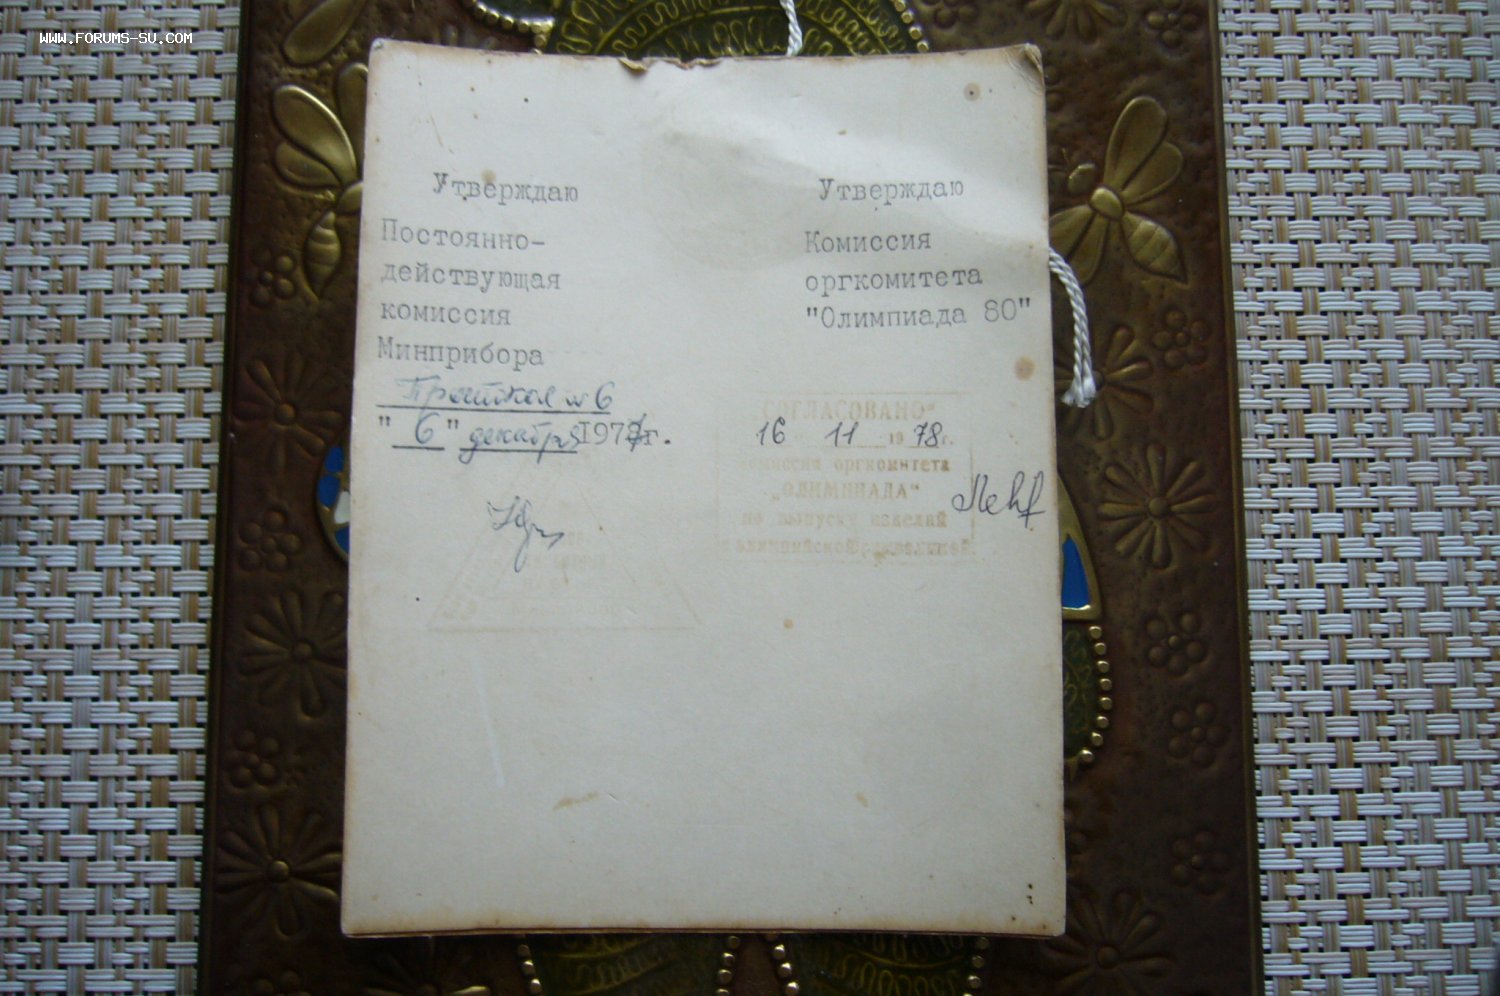 WWW.FORUMS-SU.COM
Утверждаю
Постоянно-
действующая
комиссия
Минприбора
Протокол № 6
" 6 " декабря 1977г.
Утверждаю
Комиссия
оргкомитета
"Олимпиада 80"
СОГЛАСОВАНО"
16 11 1978г.
комиссия оргкомитета
„ОЛИМПИАДА"
по выпуску изделий
с олимпийской символикой